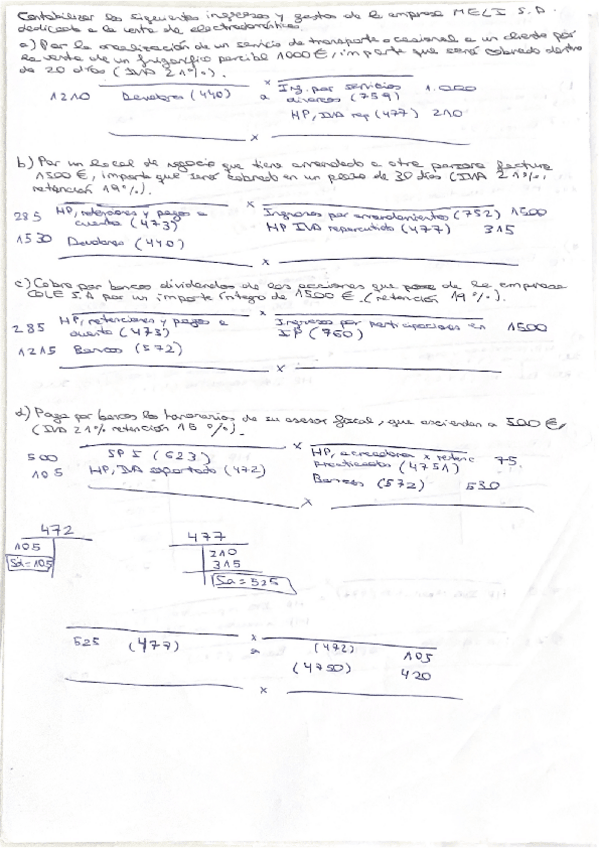 Contabilizar los siguientes ingresos y gastos de la empresa MELI S.A.
dedicada a la venta de electrodomésticos.
a) Por la realización de un servicio de transporte ocasional a un cliente por
la venta de un frigorífico parcial 1000 €, importe que será cobrado dentro
de 20 días (IVA 21%).
x
1210 Deudores (440) a Ing. por servicios diversos (759) 1.000
HP, IVA rep (477) 210
x
b) Por un local de negocio que tiene arrendado a otra persona factura
1500 €, importe que será cobrado en un plazo de 30 días (IVA 21%,
retención 19%).
x
285 HP, retenciones y pagos a cuenta (473) Ingresos por arrendamientos (752) 1500
HP IVA repercutido (477) 315
1530 Deudores (440)
x
c) Cobra por bancos dividendos de las acciones que posee de la empresa
COLE S.A por un importe íntegro de 1500 €. (retención 19%).
x
285 HP, retenciones y pagos a cuenta (473) Ingresos por participaciones en IP (760) 1500
1215 Bancos (572)
x
d) Paga por bancos los honorarios de su asesor fiscal, que ascienden a 500 €,
(IVA 21% retención 15%).
x
500 SPI (623) HP, acreedora x retenc practicadas (4751) 75.
105 HP, IVA soportado (472)
Bancos (572) 530
x
472 477
105 210
315
Sd=105 Sa=525
x
525 (477) a (472) 105
(4750) 420
x